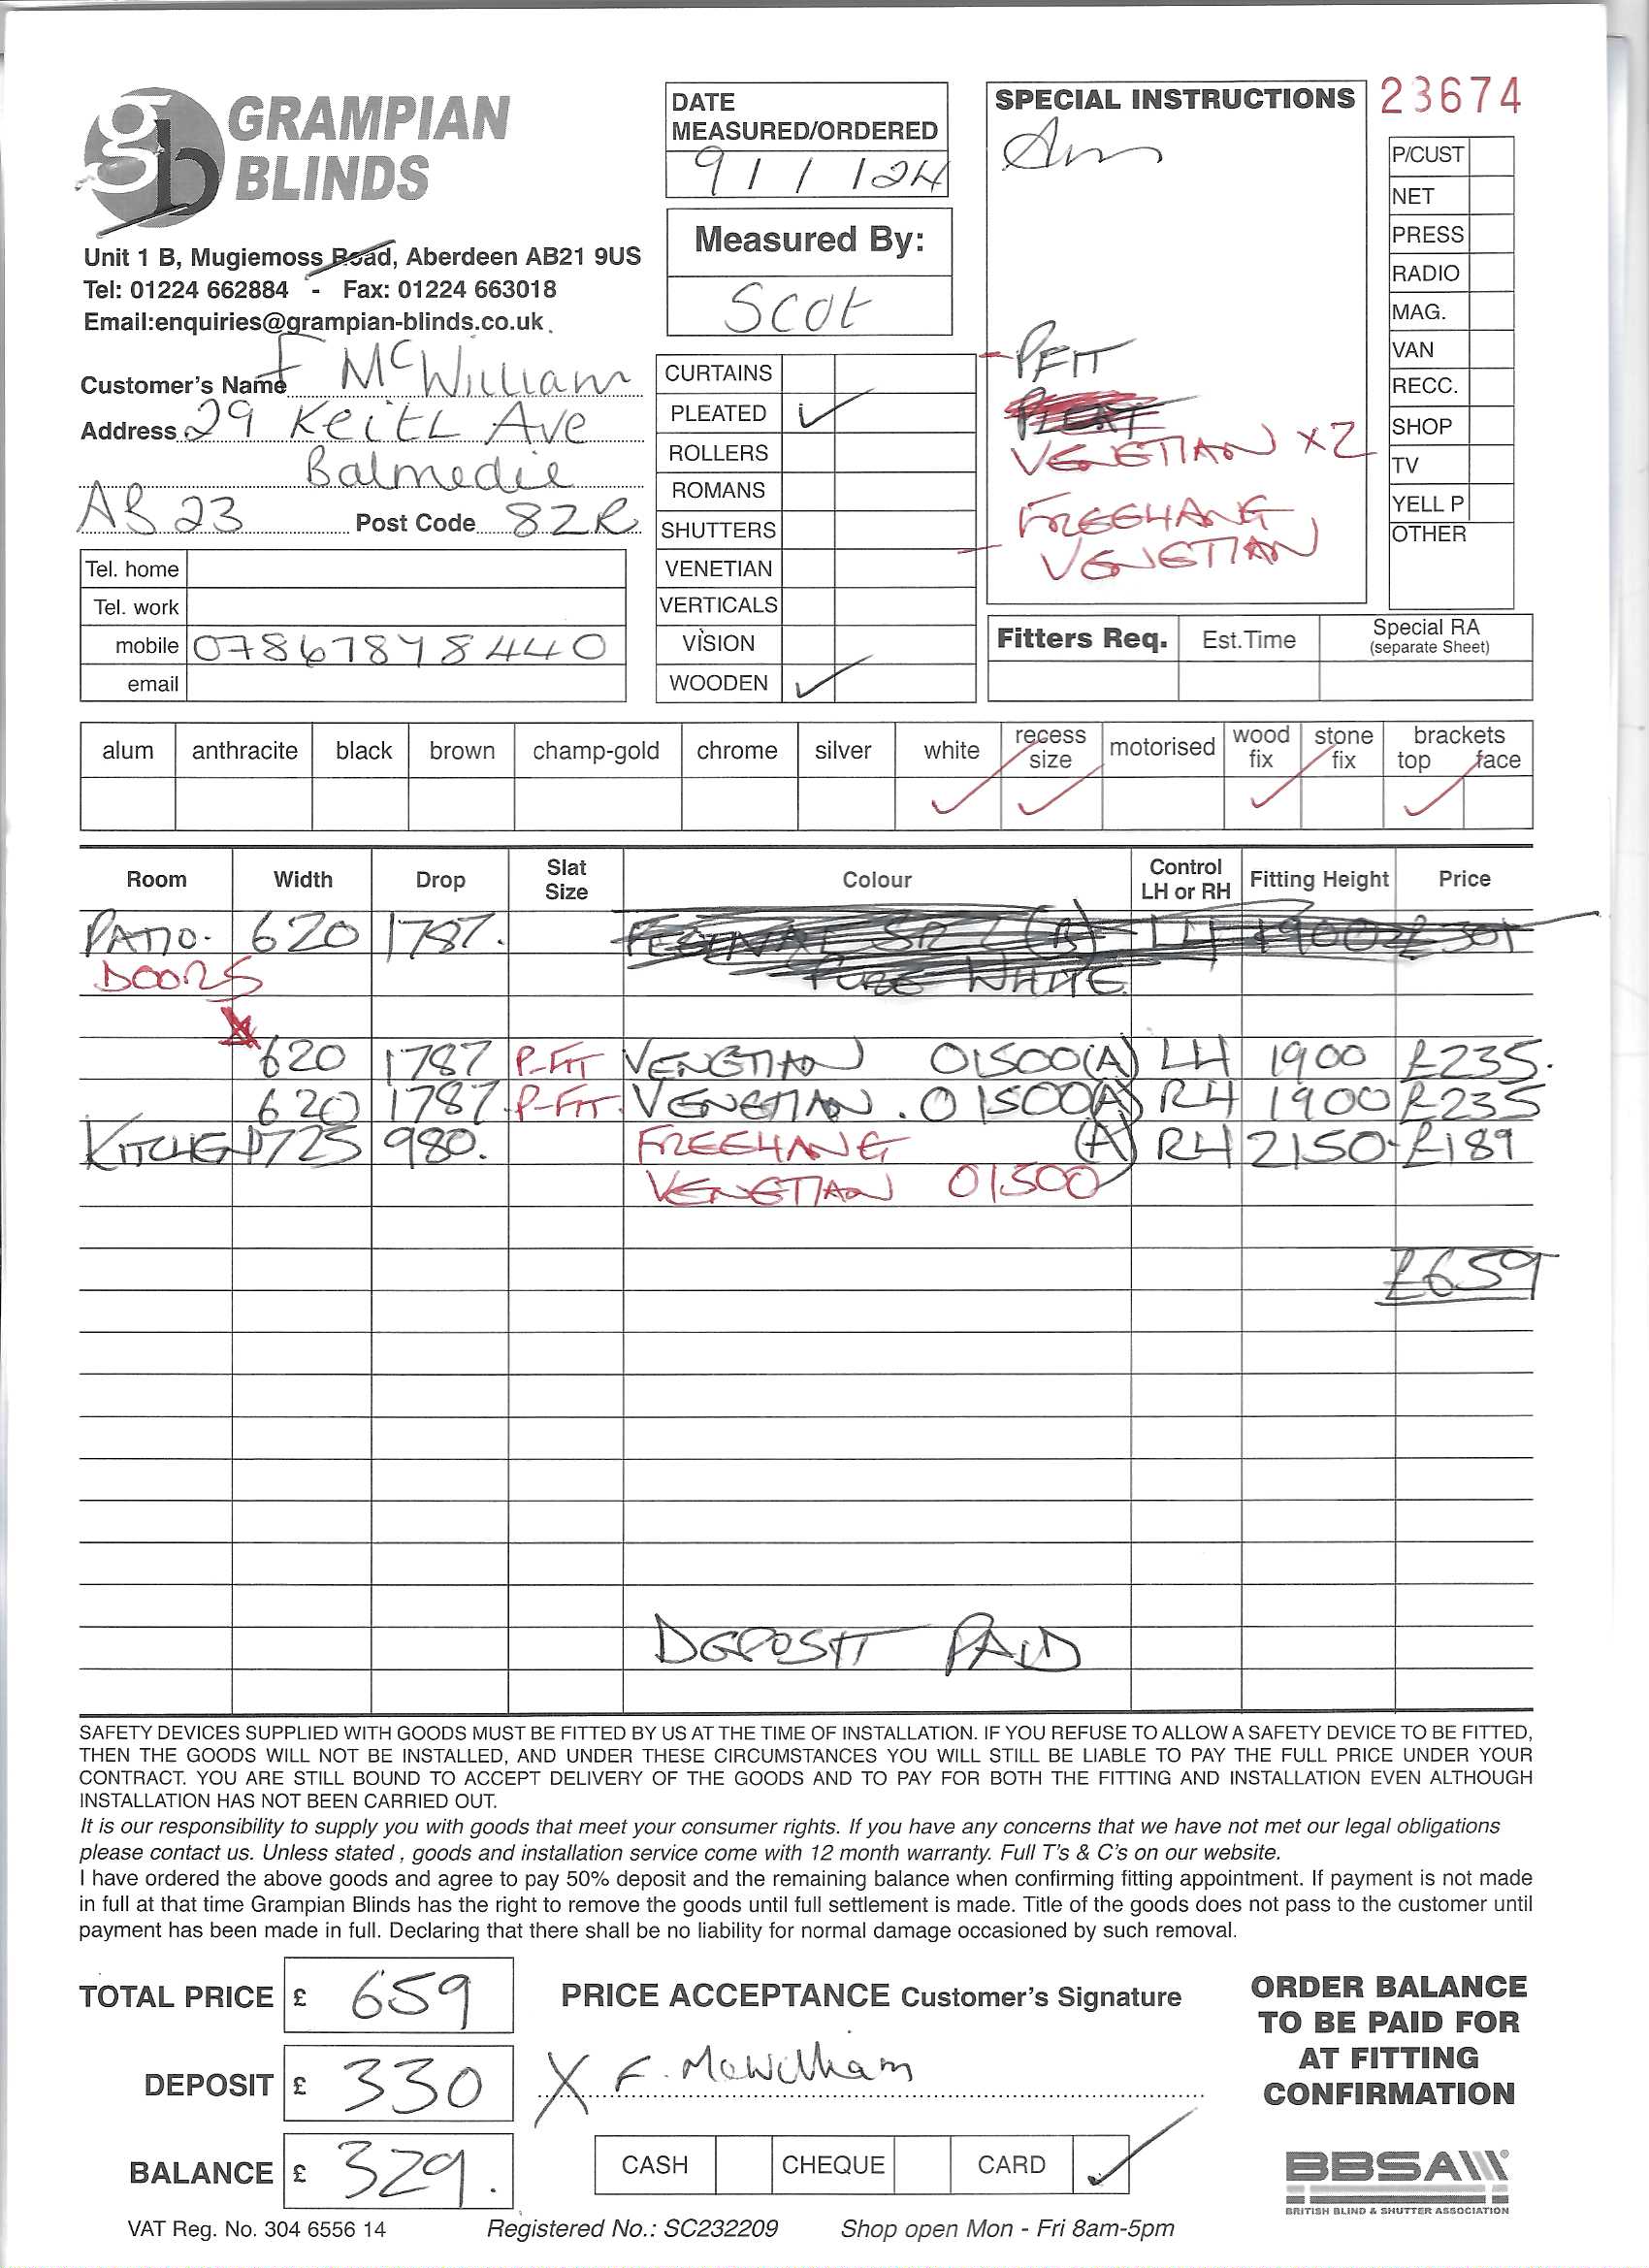 GRAMPIAN
BLINDS
Unit 1 B, Mugiemoss Road, Aberdeen AB21 9US
Tel: 01224 662884 - Fax: 01224 663018
Email:enquiries@grampian-blinds.co.uk
DATE
MEASURED/ORDERED
9 / 1 / 24
Measured By:
Scot
SPECIAL INSTRUCTIONS
23674
Am
- PFIT
VENETIAN x2
- FREEHANG
VENETIAN
P/CUST
NET
PRESS
RADIO
MAG.
VAN
RECC.
SHOP
TV
YELL P
OTHER
Customer's Name F McWilliam
Address 29 Keith Ave
Balmedie
AB23 Post Code 8ZR
Tel. home
Tel. work
mobile
email
CURTAINS
PLEATED ✓
ROLLERS
ROMANS
SHUTTERS
VENETIAN
VERTICALS
VISION
WOODEN ✓
Fitters Req. Est.Time Special RA
(separate Sheet)
alum anthracite black brown champ-gold chrome silver white recess size motorised wood fix stone fix brackets top face
✓ ✓ ✓ ✓
Room Width Drop Slat Size Colour Control LH or RH Fitting Height Price
PATIO. 620 1787. LH 1900 £301
DOORS PURE WHITE
620 1787 P-FIT VENETIAN 01500(A) LH 1900 £235.
620 1787. P-FIT. VENETIAN. 01500(A) RH 1900 £235
KITCHEN 1725 980. FREEHANG (A) RH 2150- £189
VENETIAN 01500
£659
DEPOSIT PAID
SAFETY DEVICES SUPPLIED WITH GOODS MUST BE FITTED BY US AT THE TIME OF INSTALLATION. IF YOU REFUSE TO ALLOW A SAFETY DEVICE TO BE FITTED,
THEN THE GOODS WILL NOT BE INSTALLED, AND UNDER THESE CIRCUMSTANCES YOU WILL STILL BE LIABLE TO PAY THE FULL PRICE UNDER YOUR
CONTRACT. YOU ARE STILL BOUND TO ACCEPT DELIVERY OF THE GOODS AND TO PAY FOR BOTH THE FITTING AND INSTALLATION EVEN ALTHOUGH
INSTALLATION HAS NOT BEEN CARRIED OUT.
It is our responsibility to supply you with goods that meet your consumer rights. If you have any concerns that we have not met our legal obligations
please contact us. Unless stated , goods and installation service come with 12 month warranty. Full T's & C's on our website.
I have ordered the above goods and agree to pay 50% deposit and the remaining balance when confirming fitting appointment. If payment is not made
in full at that time Grampian Blinds has the right to remove the goods until full settlement is made. Title of the goods does not pass to the customer until
payment has been made in full. Declaring that there shall be no liability for normal damage occasioned by such removal.
TOTAL PRICE £ 659
DEPOSIT £ 330
BALANCE £ 329.
PRICE ACCEPTANCE Customer's Signature
X F. McWilliam
CASH CHEQUE CARD ✓
ORDER BALANCE
TO BE PAID FOR
AT FITTING
CONFIRMATION
BBSA
BRITISH BLIND & SHUTTER ASSOCIATION
VAT Reg. No. 304 6556 14 Registered No.: SC232209 Shop open Mon - Fri 8am-5pm